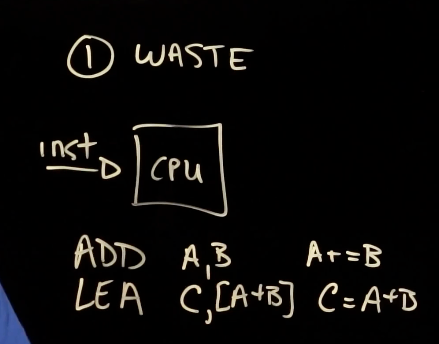 ① WASTE
inst
CPU
ADD A,B A+=B
LEA C,[A+B] C=A+B